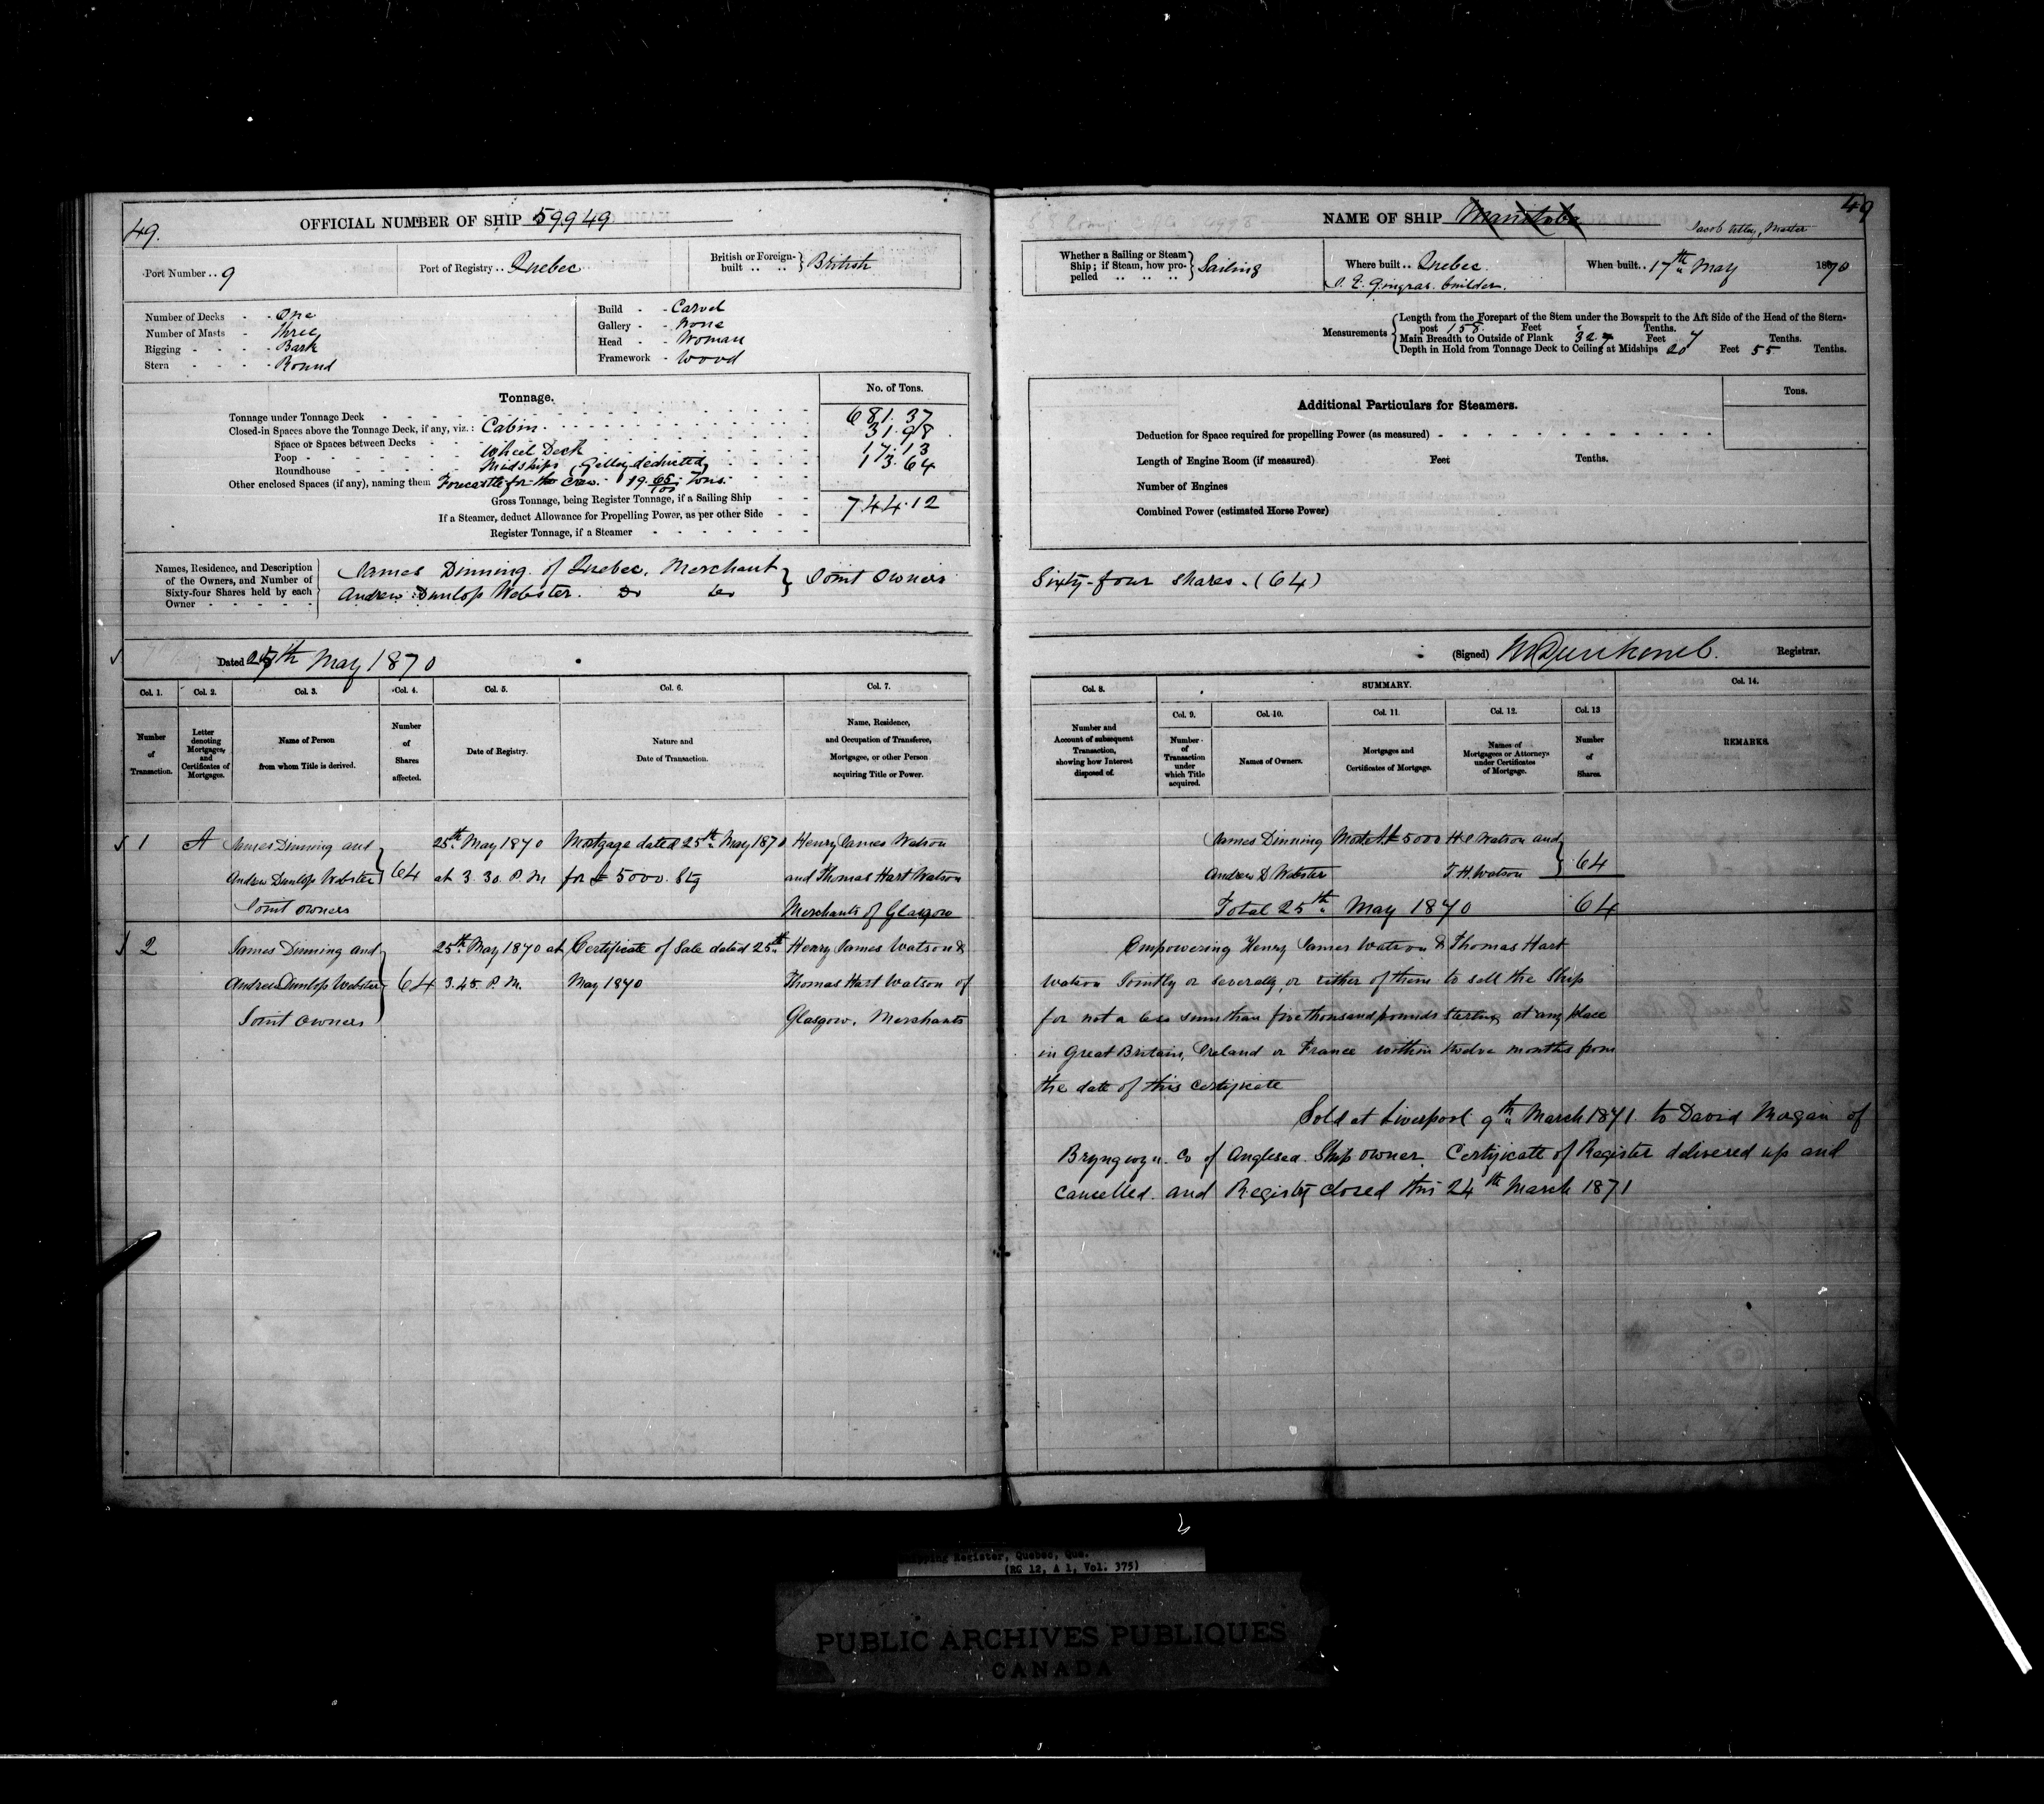 49.
OFFICIAL NUMBER OF SHIP 59949
Port Number .. 9
Port of Registry .. Quebec
British or Foreign-built .. .. British
Number of Decks - - One
Number of Masts - Three
Rigging - - - - Bark
Stern - - - - Round
Build - - Carvel
Gallery - - None
Head - - Woman
Framework - Wood
Tonnage.
No. of Tons.
Tonnage under Tonnage Deck 681.37
Closed-in Spaces above the Tonnage Deck, if any, viz.: Cabin 31.98
Space or Spaces between Decks
Poop Wheel Deck 17.13
Roundhouse Midships (Galley deducted) 13.64
Other enclosed Spaces (if any), naming them Forecastle for the Crew. 19.65/100 Tons.
Gross Tonnage, being Register Tonnage, if a Sailing Ship 744.12
If a Steamer, deduct Allowance for Propelling Power, as per other Side
Register Tonnage, if a Steamer
Names, Residence, and Description of the Owners, and Number of Sixty-four Shares held by each Owner
James Dinning of Quebec, Merchant
Andrew Dunlop Webster. Do Do
} Joint Owners
Dated 25th May 1870
Col. 1. Col. 2. Col. 3. Col. 4. Col. 5. Col. 6. Col. 7.
Number of Transaction.
Letter denoting Mortgages, and Certificates of Mortgages.
Name of Person from whom Title is derived.
Number of Shares affected.
Date of Registry.
Nature and Date of Transaction.
Name, Residence, and Occupation of Transferee, Mortgagee, or other Person acquiring Title or Power.
1 A James Dinning and 25th May 1870 Mortgage dated 25th May 1870 Henry James Watson
Andrew Dunlop Webster } 64 at 3.30 P.M. for £5000 Stg and Thomas Hart Watson
Joint owners Merchants of Glasgow
2 James Dinning and 25th May 1870 at Certificate of Sale dated 25th Henry James Watson &
Andrew Dunlop Webster } 64 3.45 P.M. May 1870 Thomas Hart Watson of
Joint Owners Glasgow, Merchants
49
NAME OF SHIP Manitoba
Jacob , Master
Whether a Sailing or Steam Ship; if Steam, how propelled .. .. .. Sailing
Where built .. Quebec.
Gingras. builder.
When built .. 17th May 1870
Measurements
Length from the Forepart of the Stem under the Bowsprit to the Aft Side of the Head of the Stern-
post 158 Feet Tenths.
Main Breadth to Outside of Plank 32 Feet 7 Tenths.
Depth in Hold from Tonnage Deck to Ceiling at Midships 20 Feet 55 Tenths.
Additional Particulars for Steamers.
Tons.
Deduction for Space required for propelling Power (as measured)
Length of Engine Room (if measured) Feet Tenths.
Number of Engines
Combined Power (estimated Horse Power)
Sixty-four shares. (64)
(Signed) Registrar.
Col. 8. SUMMARY. Col. 14.
Col. 9. Col. 10. Col. 11. Col. 12. Col. 13
Number and Account of subsequent Transaction, showing how Interest disposed of.
Number of Transaction under which Title acquired.
Names of Owners.
Mortgages and Certificates of Mortgage.
Names of Mortgagees or Attorneys under Certificates of Mortgage.
Number of Shares.
REMARKS.
James Dinning £5000 H.J. Watson and
Andrew D Webster T.H. Watson } 64
Total 25th May 1870 64
Empowering Henry James Watson & Thomas Hart
Watson Jointly or severally, or either of them to sell the Ship
for not a less sum than five thousand pounds sterling at any place
in Great Britain, Ireland or France within twelve months from
the date of this Certificate
Sold at Liverpool 9th March 1871. to David Morgan of
Bryngwyn. Co of Anglesea. Ship owner. Certificate of Register delivered up and
cancelled. and Registry closed this 24th March 1871
Shipping Register, Quebec, Que.
(RG 12, A 1, Vol. 375)
PUBLIC ARCHIVES PUBLIQUES
CANADA